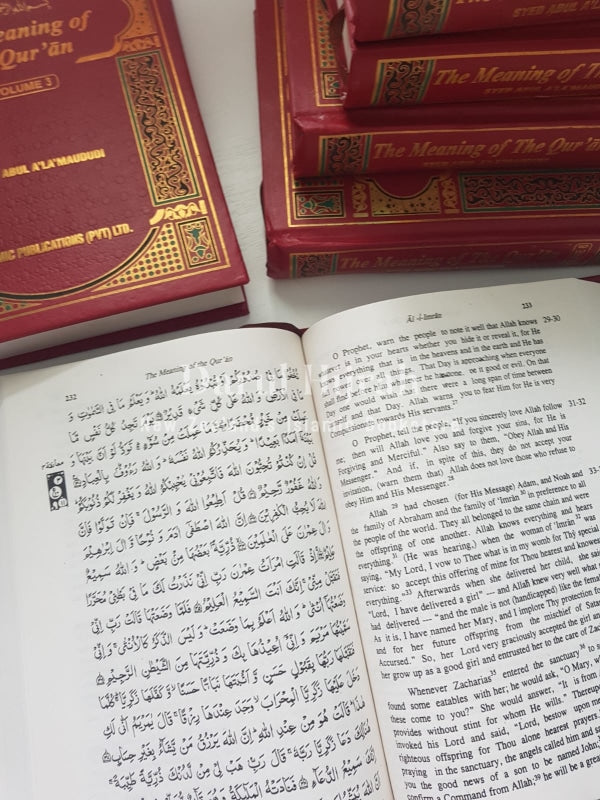 Meaning of
Qur'ān
VOLUME 3
ABUL A'LA' MAUDUDI
MIC PUBLICATIONS (PVT) LTD.
SYED ABUL A'LA
The Meaning of Th
SYED ABUL A'LA'MAUDUDI
The Meaning of The Qur'ān
The Meaning of The Qur'ān
Darul
New Zealand's Islamic
232
The Meaning of the Qur'ān
يَعْلَمْهُ اللّٰهُ ۗ وَيَعْلَمُ مَا فِى السَّمٰوٰتِ وَ
مَا فِى الْاَرْضِ ۗ وَاللّٰهُ عَلٰى كُلِّ شَىْءٍ قَدِيْرٌ يَوْمَ تَجِدُ كُلُّ نَفْسٍ مَّا
عَمِلَتْ مِنْ سُوْٓءٍ ۚ تَوَدُّ لَوْ اَنَّ بَيْنَهَا وَ
بَيْنَهٗٓ اَمَدًۢا بَعِيْدًا ۗ وَيُحَذِّرُكُمُ اللّٰهُ نَفْسَهٗ ۗ وَاللّٰهُ رَءُوْفٌۢ بِالْعِبَادِ
قُلْ اِنْ كُنْتُمْ تُحِبُّوْنَ اللّٰهَ فَاتَّبِعُوْنِىْ يُحْبِبْكُمُ اللّٰهُ وَيَغْفِرْ لَكُمْ ذُنُوْبَكُمْ
وَاللّٰهُ غَفُوْرٌ رَّحِيْمٌ قُلْ اَطِيْعُوا اللّٰهَ وَالرَّسُوْلَ ۚ فَاِنْ تَوَلَّوْا فَاِنَّ
اللّٰهَ لَا يُحِبُّ الْكٰفِرِيْنَ اِنَّ اللّٰهَ اصْطَفٰٓى اٰدَمَ وَنُوْحًا وَّاٰلَ اِبْرٰهِيْمَ
وَاٰلَ عِمْرٰنَ عَلَى الْعٰلَمِيْنَ ذُرِّيَّةًۢ بَعْضُهَا مِنْۢ بَعْضٍ ۗ وَاللّٰهُ سَمِيْعٌ
عَلِيْمٌ اِذْ قَالَتِ امْرَاَتُ عِمْرٰنَ رَبِّ اِنِّىْ نَذَرْتُ لَكَ مَا فِىْ بَطْنِىْ مُحَرَّرًا
فَتَقَبَّلْ مِنِّىْ ۚ اِنَّكَ اَنْتَ السَّمِيْعُ الْعَلِيْمُ فَلَمَّا وَضَعَتْهَا قَالَتْ رَبِّ اِنِّىْ
وَضَعْتُهَآ اُنْثٰى ۗ وَاللّٰهُ اَعْلَمُ بِمَا وَضَعَتْ ۗ وَلَيْسَ الذَّكَرُ كَالْاُنْثٰى ۚ وَاِنِّىْ
سَمَّيْتُهَا مَرْيَمَ وَاِنِّىْٓ اُعِيْذُهَا بِكَ وَذُرِّيَّتَهَا مِنَ الشَّيْطٰنِ الرَّجِيْمِ
فَتَقَبَّلَهَا رَبُّهَا بِقَبُوْلٍ حَسَنٍ وَّاَنْۢبَتَهَا نَبَاتًا حَسَنًا ۙ وَّكَفَّلَهَا زَكَرِيَّا ۗ كُلَّمَا
دَخَلَ عَلَيْهَا زَكَرِيَّا الْمِحْرَابَ ۙ وَجَدَ عِنْدَهَا رِزْقًا ۚ قَالَ يٰمَرْيَمُ اَنّٰى لَكِ
هٰذَا ۗ قَالَتْ هُوَ مِنْ عِنْدِ اللّٰهِ ۗ اِنَّ اللّٰهَ يَرْزُقُ مَنْ يَّشَآءُ بِغَيْرِ حِسَابٍ
هُنَالِكَ دَعَا زَكَرِيَّا رَبَّهٗ ۚ قَالَ رَبِّ هَبْ لِىْ مِنْ لَّدُنْكَ ذُرِّيَّةً طَيِّبَةً ۚ
سَمِيْعُ الدُّعَآءِ فَنَادَتْهُ الْمَلٰٓئِكَةُ
Āl -i-Imrān
233
O Prophet, warn the people to note it well that Allah knows 29-30
what is in your hearts whether you hide it or reveal it, for He
knows everything that is in the heavens and in the earth and He has
power over all things. That Day is approaching when everyone
shall find before him what he has done, be it good or evil. On that
Day one would wish that there were a long span of time between
him and that Day. Allah warns you to fear Him for He is very
Compassionate towards His servants.²⁷
O Prophet, tell the people, "If you sincerely love Allah follow 31-32
me; then will Allah love you and forgive your sins, for He is
Forgiving and Merciful." Also say to them, "Obey Allah and His
Messenger." And if, in spite of this, they do not accept your
invitation, (warn them that) Allah does not love those who refuse to
obey Him and His Messenger.²⁸
Allah ²⁹ had chosen (for His Message) Adam, and Noah and 33-
the family of Abraham and the family of 'Imrān ³⁰ in preference to all
the people of the world. They all belonged to the same chain and were
the offspring of one another. Allah knows everything and hears
everything.³¹ (He was hearing,) when the woman of 'Imrān ³² was
saying, "My Lord, I vow to Thee what is in my womb for Thy special
service: so accept this offering of mine for Thou hearest and knowest
everything."³³ Afterwards when she delivered her child, she said
"Lord, I have delivered a girl" --- and Allah knew very well what
had delivered --- "and the male is not (handicapped) like the female
As it is, I have named her Mary, and I implore Thy protection for
and for her future offspring from the mischief of Satan
Accursed." So, her Lord very graciously accepted the girl and
her grow up as a good girl and entrusted her to the care of Zac
Whenever Zacharias³⁵ entered the sanctuary³⁶ to s
found some eatables with her; he would ask, "O Mary, wh
these come to you?" She would answer, "It is from
provides without stint for whom He wills." Thereupo
invoked his Lord and said, "Lord, bestow upon me
righteous offspring for Thou alone hearest prayers.
praying in the sanctuary, the angels called him and sai
you the good news of a son to be named John;
confirm a Command from Allah;³⁹ he will be a great